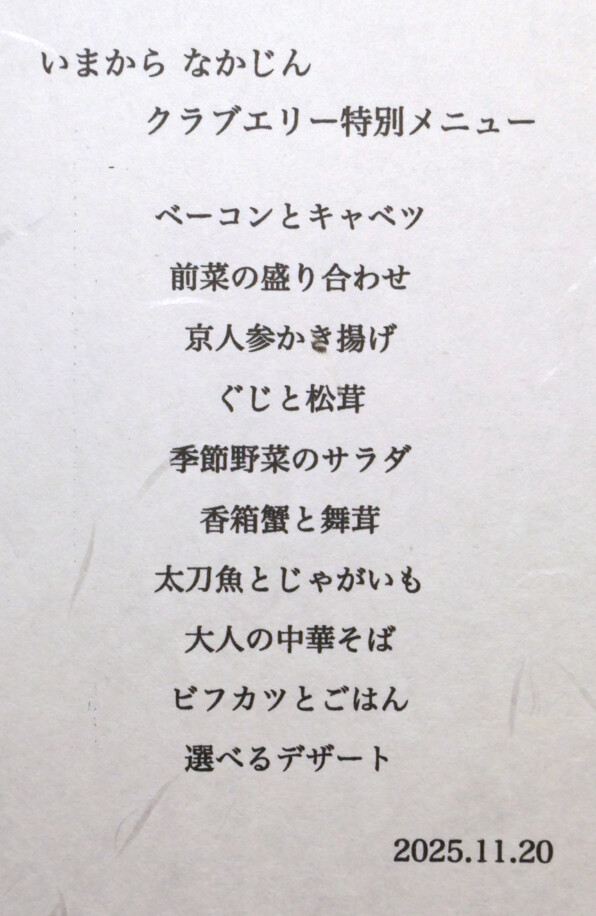 いまから なかじん
クラブエリー特別メニュー
ベーコンとキャベツ
前菜の盛り合わせ
京人参かき揚げ
ぐじと松茸
季節野菜のサラダ
香箱蟹と舞茸
太刀魚とじゃがいも
大人の中華そば
ビフカツとごはん
選べるデザート
2025.11.20